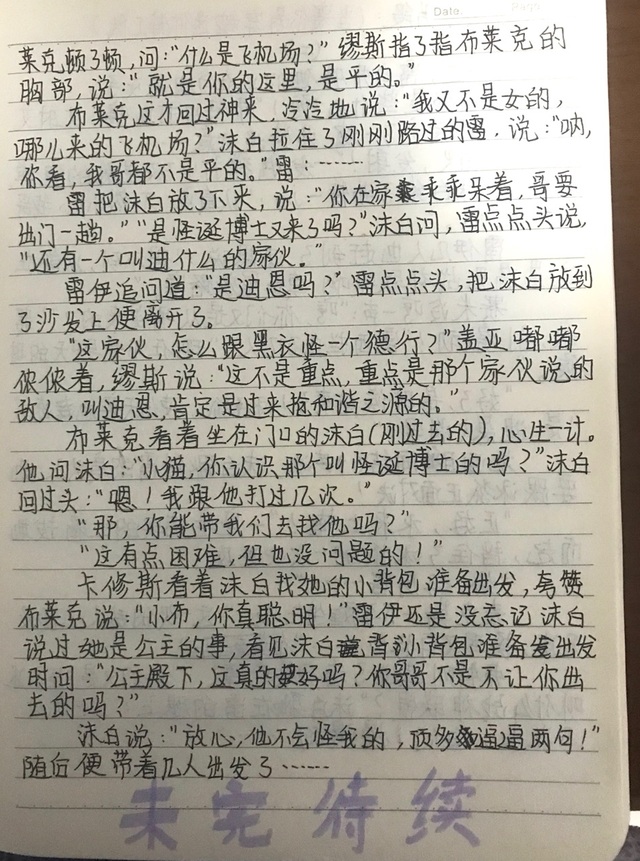 Date.
莱克顿了顿，问：“什么是飞机场？”缪斯指了指布莱克的
胸部，说：“就是你的这里，是平的。”
布莱克这才回过神来，冷冷地说：“我又不是女的，
哪儿来的飞机场？”沫白拉住了刚刚路过的雷，说：“呐，
你看，我哥都不是平的。”雷：……
雷把沫白放了下来，说：“你在家乖乖呆着，哥要
出门一趟。”“是怪诞博士又来了吗？”沫白问，雷点点头说，
“还有一个叫迪什么的家伙。”
雷伊追问道：“是迪恩吗？”雷点点头，把沫白放到
了沙发上便离开了。
“这家伙，怎么跟黑衣怪一个德行？”盖亚嘟嘟
侬侬着，缪斯说：“这不是重点，重点是那个家伙说的
敌人，叫迪恩，肯定是过来抢和谐之源的。”
布莱克看着坐在门口的沫白(刚过去的)，心生一计。
他问沫白：“小猫，你认识那个叫怪诞博士的吗？”沫白
回过头：“嗯！我跟他打过几次。”
“那，你能带我们去找他吗？”
“这有点困难，但也没问题的！”
卡修斯看着沫白找她的小背包准备出发，夸赞
布莱克说：“小布，你真聪明！”雷伊还是没忘记沫白
说过她是公主的事，看见沫白背小背包准备出发
时问：“公主殿下，这真的好吗？你哥哥不是不让你出
去的吗？”
沫白说：“放心，他不会怪我的，顶多逼逼两句！”
随后便带着几人出发了……
未完待续